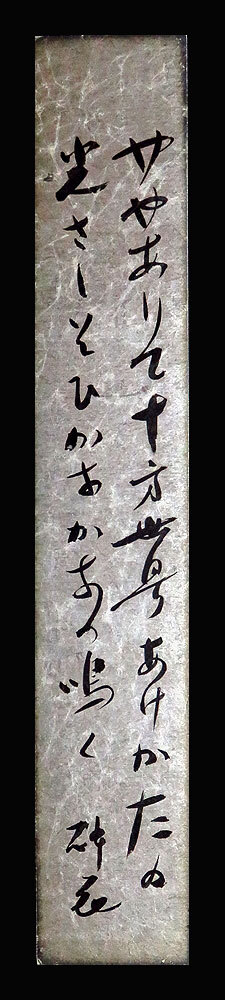 ややありて十方世界あけかたの
光さしそひかなかなの鳴く 砕花